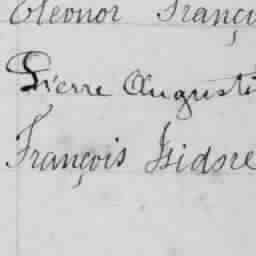 Eleonor Franç
Pierre Augusti
François Isidore